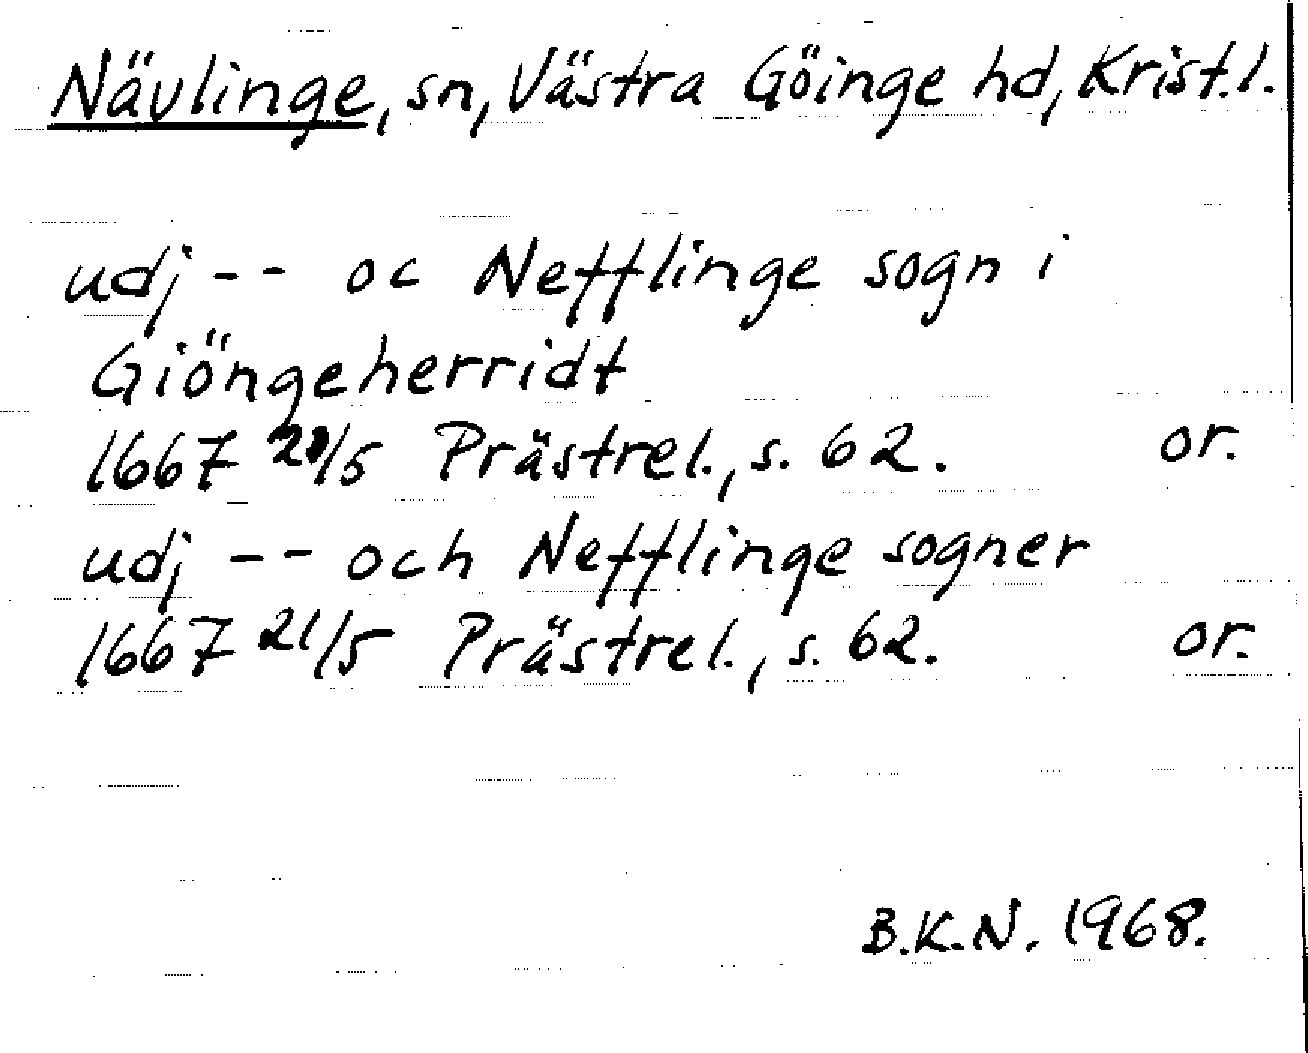 Nävlinge, sn, Västra Göinge hd, Krist.l.
udj -- oc Nefflinge sogn i
Giöngeherridt
1667 21/5 Prästrel., s. 62. or.
udj -- och Nefflinge sogner
1667 21/5 Prästrel., s. 62. or.
B.K.N. 1968.